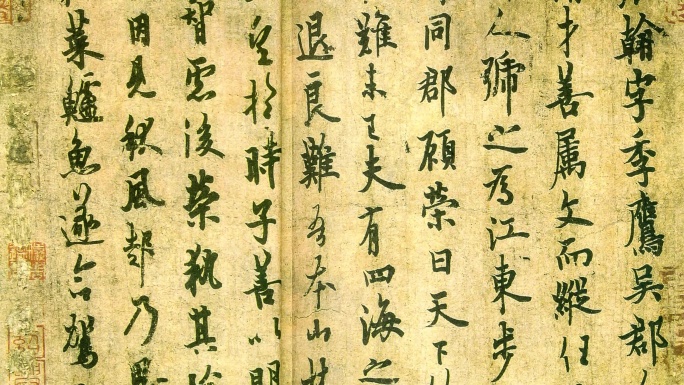 翰字季鷹吳郡
才善属文而縱任
人號之為江東步
同郡顧榮曰天下
難未已夫有四海之
退良難吾本山
望於時子善以明
智慮後榮執其
因見秋風起乃
菜鱸魚遂命駕